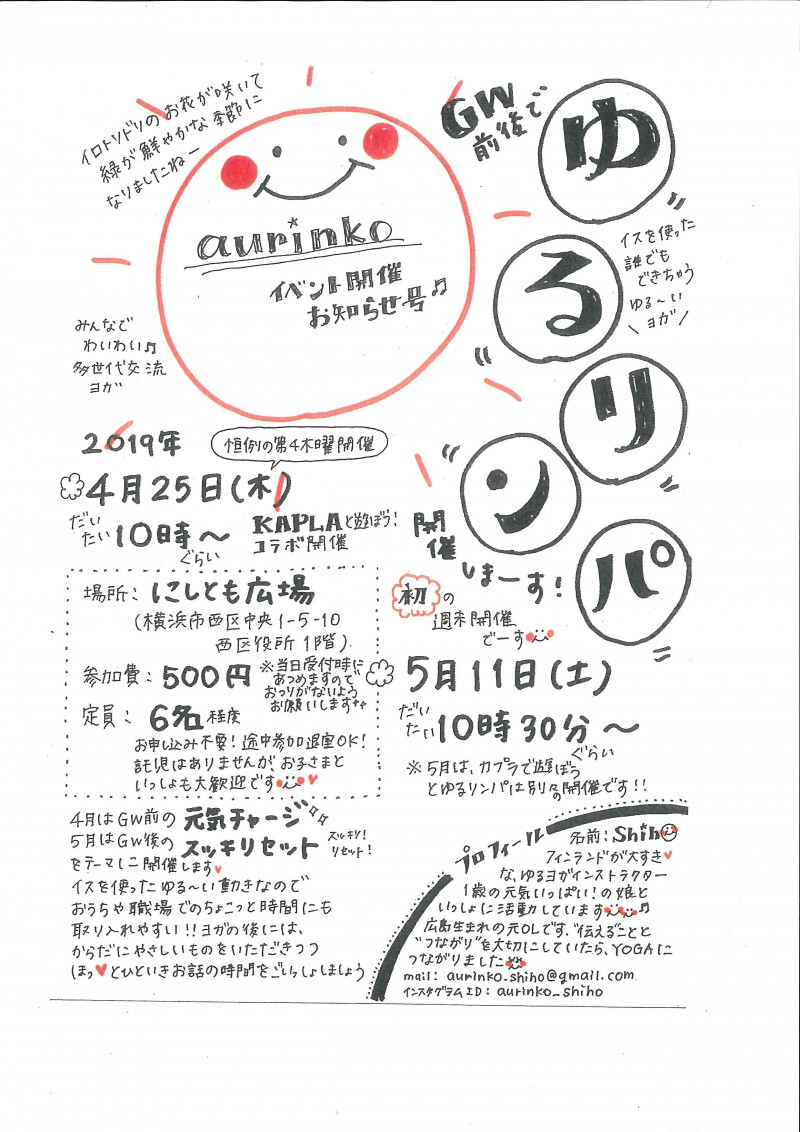 イロトリドリのお花が咲いて
緑が鮮やかな季節に
なりましたねー
aurinko
イベント開催
お知らせ号♫
みんなで
わいわい♫
多世代交流
ヨガ
GW
前後で
ゆるリンパ
開催
しまーす!
イスを使った
誰でも
できちゃう
ゆる〜い
\ヨガ/
2019年
恒例の第4木曜開催
4月25日(木)
だいたい10時〜ぐらい
KAPLAと遊ぼう!
コラボ開催
場所:にしとも広場
(横浜市西区中央1-5-10
西区役所1階)
参加費:500円
※当日受付時に
あつめますので
おつりがないよう
お願いします
定員:6名程度
お申し込み不要!途中参加退室OK!
託児はありませんが、お子さまと
いっしょも大歓迎です♥
初の
週末開催
でーす
5月11日(土)
だいたい10時30分〜ぐらい
※5月は、カプラで遊ぼう
とゆるリンパは別々の開催です!!
4月はGW前の元気チャージ
5月はGW後のスッキリセット
スッキリ!
リセット!
をテーマに開催します♥
イスを使ったゆる〜い動きなので
おうちや職場でのちょこっと時間にも
取り入れやすい!!ヨガの後には、
からだにやさしいものをいただきつつ
ほっ♥とひといきお話の時間をごいっしょしましょう
プロフィール
名前:Shiho
フィンランドが大すき♥
な、ゆるヨガインストラクター
1歳の元気いっぱい!の娘と
いっしょに活動しています♫
広島生まれの元OLです。"伝えること"と
"つながり"を大切にしていたら、YOGAに
つながりました
mail: aurinko.shiho@gmail.com
インスタグラムID: aurinko_shiho